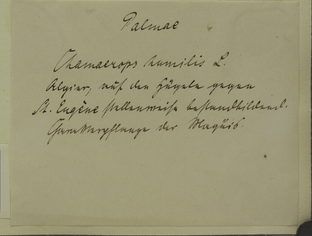 Palmae
Chamaerops humilis L.
Algier, auf den Hügeln gegen
St. Eugène stellenweise bestandbildend.
Charakterpflanze der Maquis.